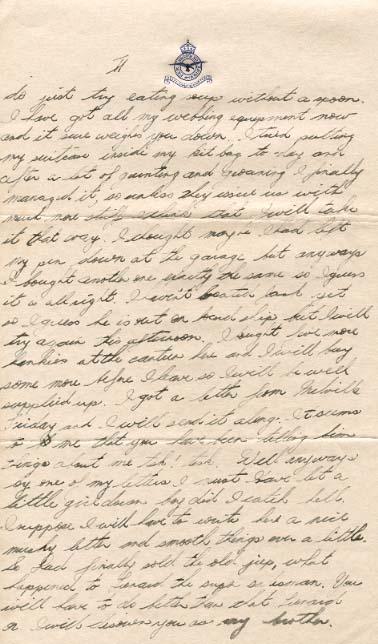 II
do just try eating soup without a spoon.
I have got all my webbing equipment now
and it sure weighs you down. I tried putting
my suitcase inside my kit bag to-day and
after a lot of grunting and groaning I finally
managed it, so unless they issue us with
much more stuff I think that I will take
it that way. I thought maybe I had left
my pen down at the garage but anyways
I bought another one exactly the same so I guess
it is allright. I haven't located Jack yet
so I guess he is out on board ship but I will
try again this afternoon. I bought five more
hankies at the canteen here and I will buy
some more before I leave so I will be well
supplied up. I got a letter from Melville
Friday and I will send it along. It seems
to me that you have been telling him
things about me tsk! tsk. Well anyways
by one of my letters I must have let a
little girl down boy did I catch hell.
I suppose I will have to write her a nice
mushy letter and smooth things over a little.
So Dad finally sold the old jeep, what
happened to the
will have to do better than that
or I will disown you as my brother.